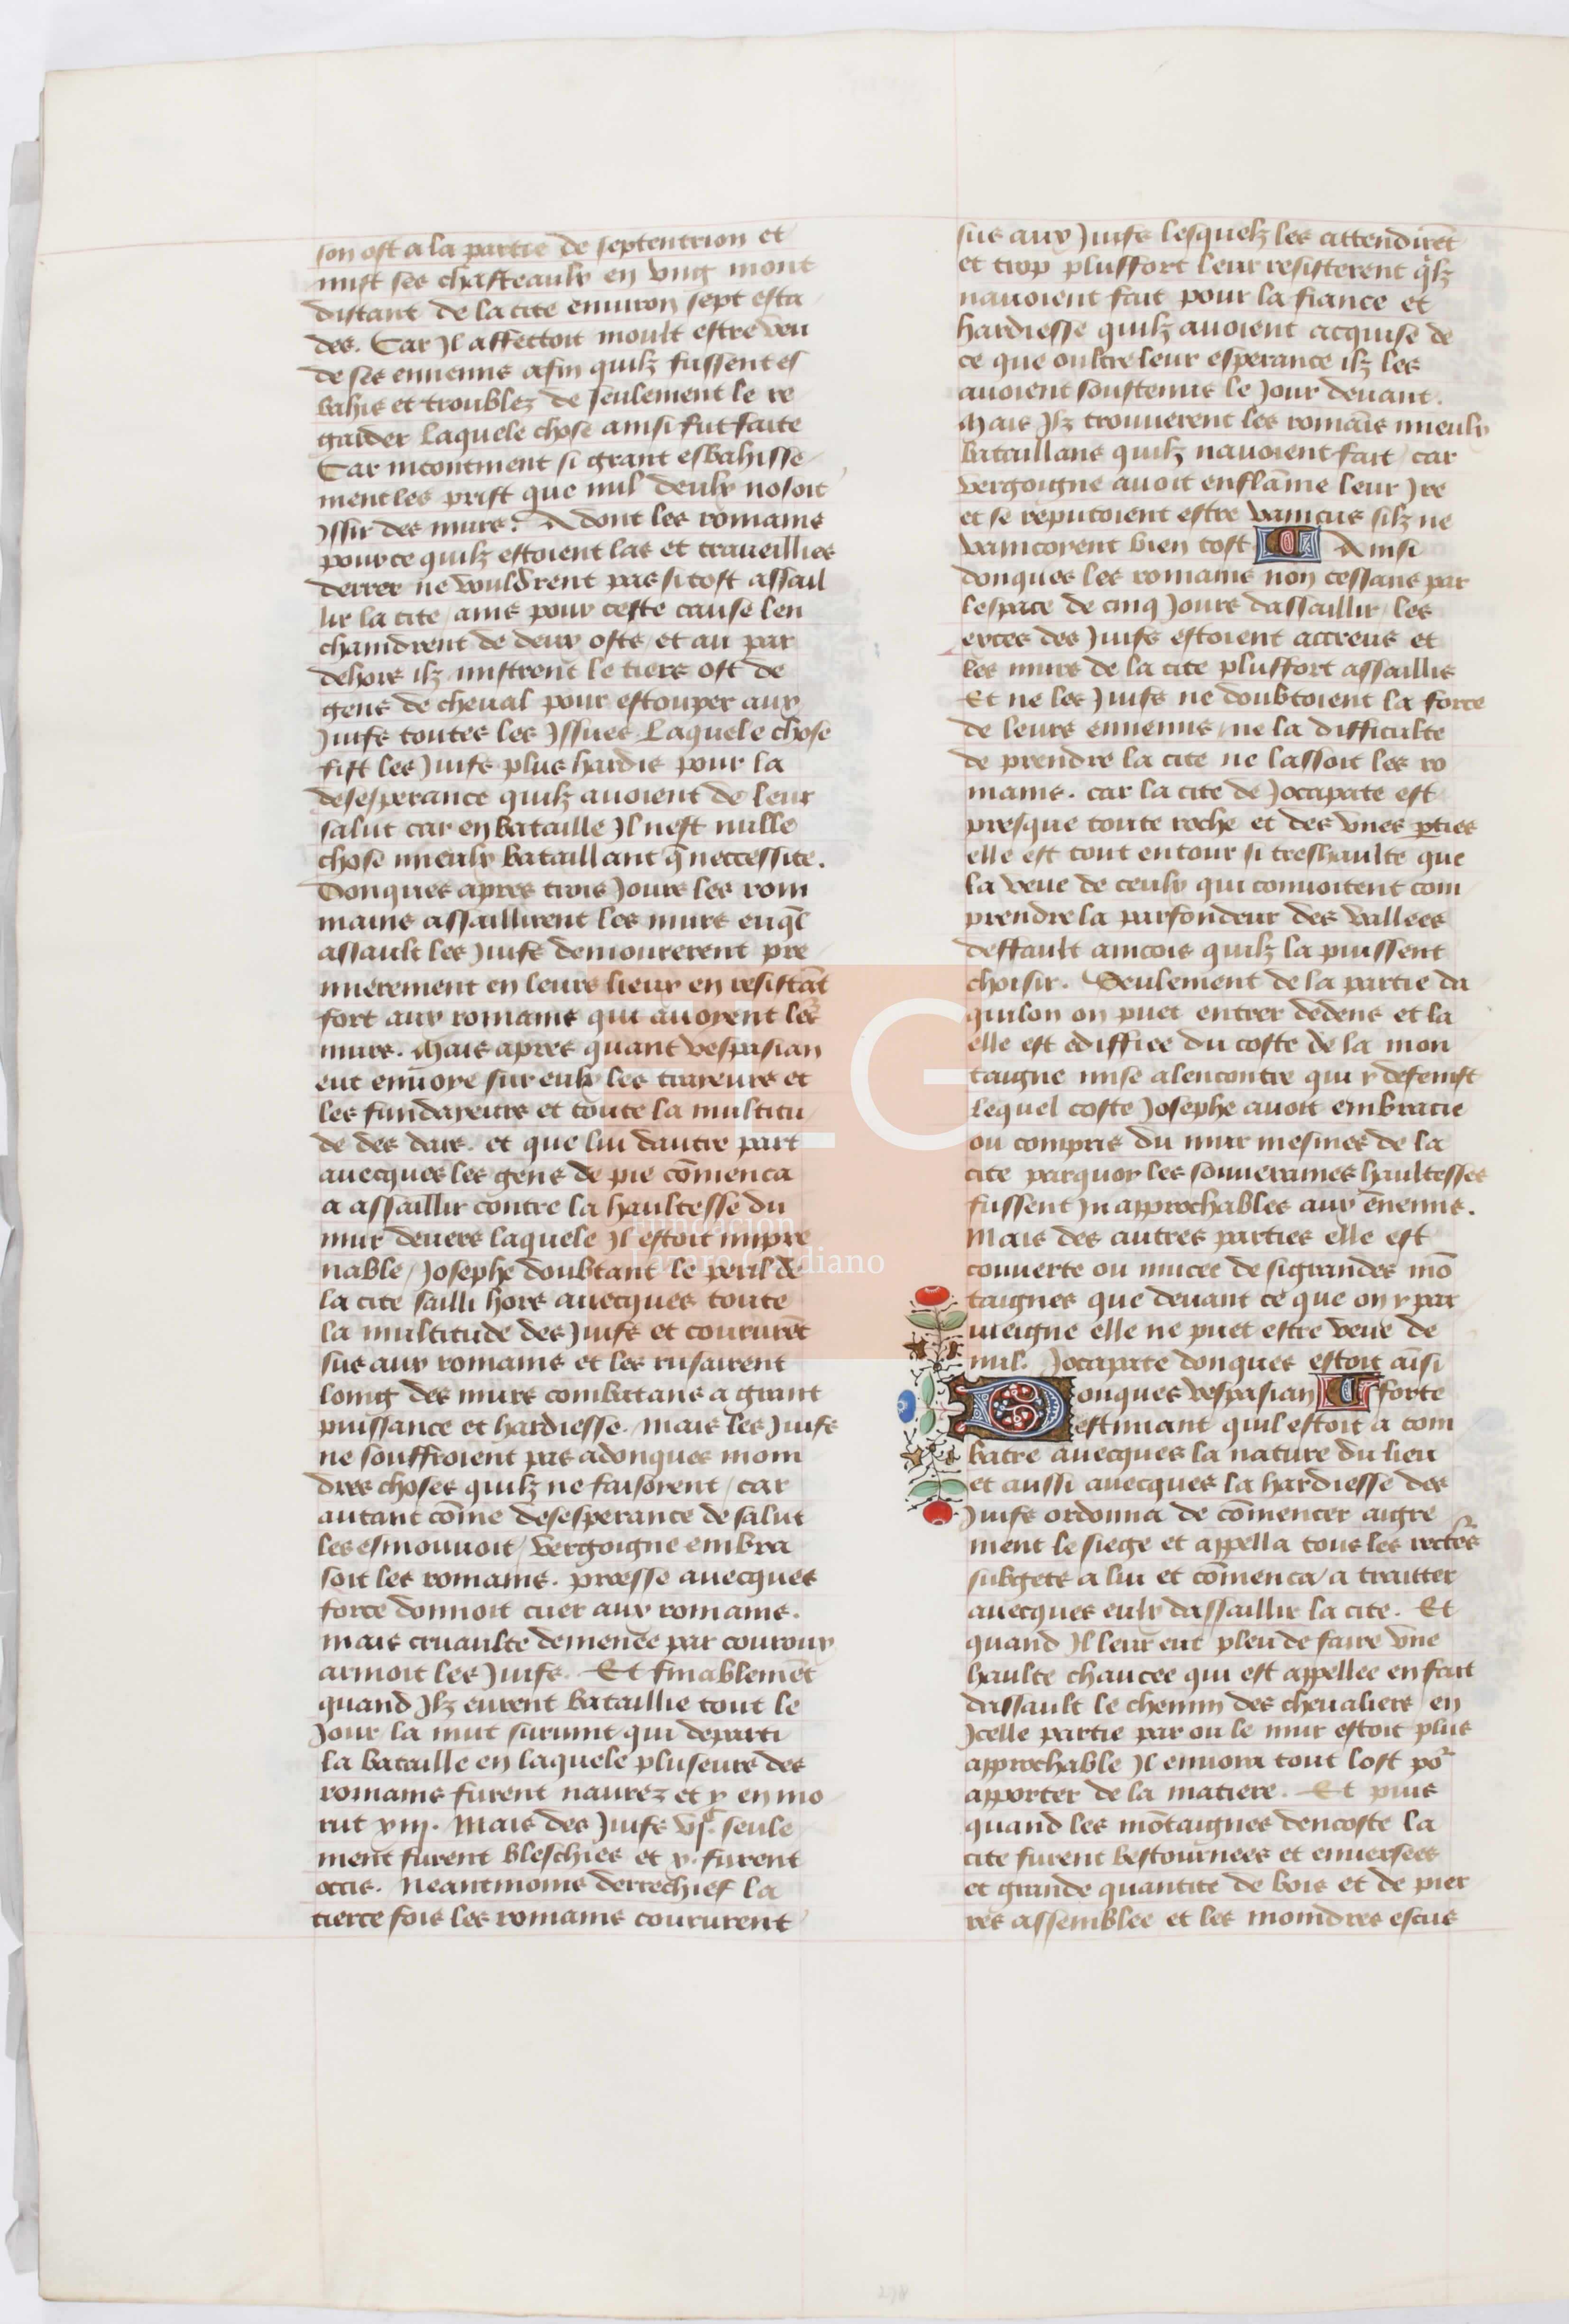 son ost a la partie de septentrion et
mist ses chasteaulx en ung mont
distant de la cite environ sept esta
des. Car Il affectoit moult estre veu
de ses ennemis afin quilz fussent es
bahis et troublez de seulement le re
garder laquele chose ainsi fut faite
Car incontinent si grant esbahisse
ment les prist que nul deulx nosoit
Issir des murs. Adont les romains
pource quilz estoient las et traveillies
derrer ne vouldrent pas si tost assail
lir la cite / ains pour ceste cause len
chaindrent de deux osts / et au par
dehors ilz mistrent le tiers ost de
gens de cheval pour estouper aux
Juifs toutes les Issues. Laquele chose
fist les Juifs plus hardis pour la
desesperance quilz avoient de leur
salut car en bataille Il nest nulle
chose mieulx bataillant q̄ neccessite.
Donques apres trois Jours les rom
mains assaillirent les murs euq̄l
assault les Juifs demourerent pre
mierement en leurs lieux en resistāt
fort aux romains qui avoyent les
murs. Mais apres quant vespasian
eut envoye sur eulx les trayeurs et
les fundayeurs et toute la multitu
de des dars. et que lui dautre part
avecques les gens de pie cōmenca
a assaillir contre la haultesse du
mur devers laquele Il estoit impre
nable / Josephe doubtant le peril de
la cite sailli hors avecques toute
la multitude des Juifs et coururēt
sus aux romains et les rusairent
loing des murs combatans a grant
puissance et hardiesse. mais les Juifs
ne souffroient pas adonques moin
dres choses quilz ne faisoient / car
autant cōme desesperance de salut
les esmouvoit / vergoigne embra
soit les romains. proesse avecques
force donnoit cuer aux romains.
mais cruaulte demenee par couroux
armoit les Juifs. Et finablemēt
quand Ilz eurent bataillie tout le
Jour la nuit survint qui departi
la bataille en laquele pluseurs des
romains furent navrez et y en mo
rut xiij. Mais des Juifs vjᶜ. seule
ment furent bleschies et x. furent
occis. Neantmoins derrechief la
tierce fois les romains coururent
sus aux Juifs lesquelz les attendirēt
et trop plussfort leur resisterent q̄lz
navoient fait pour la fiance et
hardiesse quilz avoient acquise de
ce que oultre leur esperance ilz les
avoient soustenus le Jour devant.
Mais Ilz trouverent les romaīs mieulx
bataillans quilz navoient fait / car
vergoigne avoit enflāme leur Ire
et se reputoient estre vaincus silz ne
vaincoient bien tost Ainsi
donques les romains non cessans par
lespace de cinq Jours dassaillir / les
exces des Juifs estoient accreus et
les murs de la cite plussfort assaillis
Et ne les Juifs ne doubtoient la force
de leurs ennemis / ne la difficulte
de prendre la cite ne lassoit les ro
mains. car la cite de Jocapate est
presque toute roche et des unes p̄ties
elle est tout entour si treshaulte que
la veue de ceulx qui convoitent com
prendre la parfondeur des vallees
deffault aincois quilz la puissent
choisir. Seulement de la partie da
quilon on puet entrer dedens et la
elle est ediffiee du coste de la mon
taigne mise alencontre qui y defenist
lequel coste Josephe avoit embracie
ou compris du mur mesmes de la
cite parquoy les souveraines haultesses
fussent In approchables aux ēnemis.
Mais des autres parties elle est
couverte ou mucee de si grandes mō
taignes que devant ce que on y par
viengne elle ne puet estre veue de
nul. Jocapate donques estoit aīsi
Donques vespasian forte
estimant quil estoit a com
batre avecques la nature du lieu
et aussi avecques la hardiesse des
Juifs ordonna de cōmencer aigre
ment le siege et appella tous les rectēs
subgets a lui et cōmenca a traitter
avecques eulx dassaillir la cite. Et
quand Il leur eut pleu de faire une
haulte chaucee qui est appellee en fait
dassault le chemin des chevaliers en
Icelle partie par ou le mur estoit plus
approchable Il envoia tout lost pōr
apporter de la matiere. Et puis
quand les mōtaignes dencoste la
cite furent bestournees et enversees
et grande quantite de bois et de pier
res assemblee et les moindres escus
FLG
Fundación
Lázaro Galdiano
218